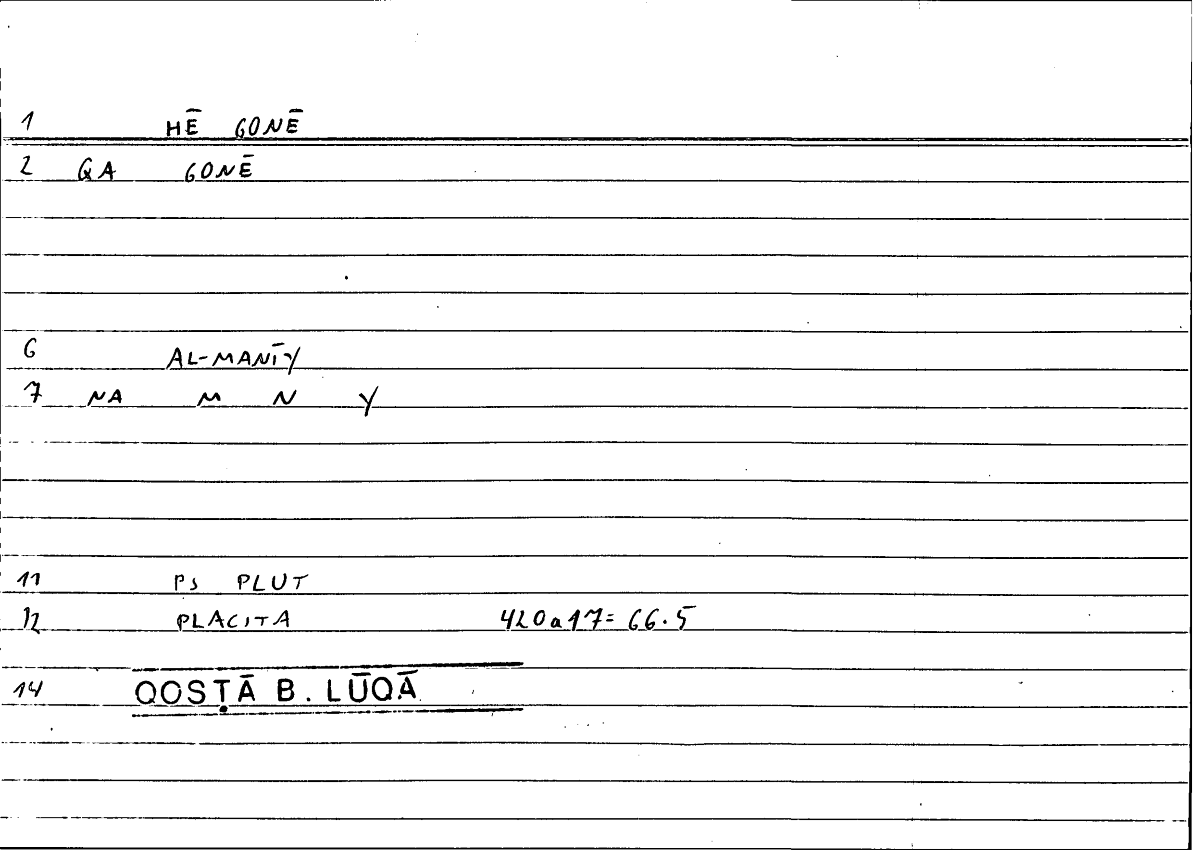 1 HĒ GONĒ
2 QA GONĒ
6 AL-MANĪY
7 NA M N Y
11 PS PLUT
12 PLACITA 420a17= 66.5
14 QOSṬĀ B. LŪQĀ